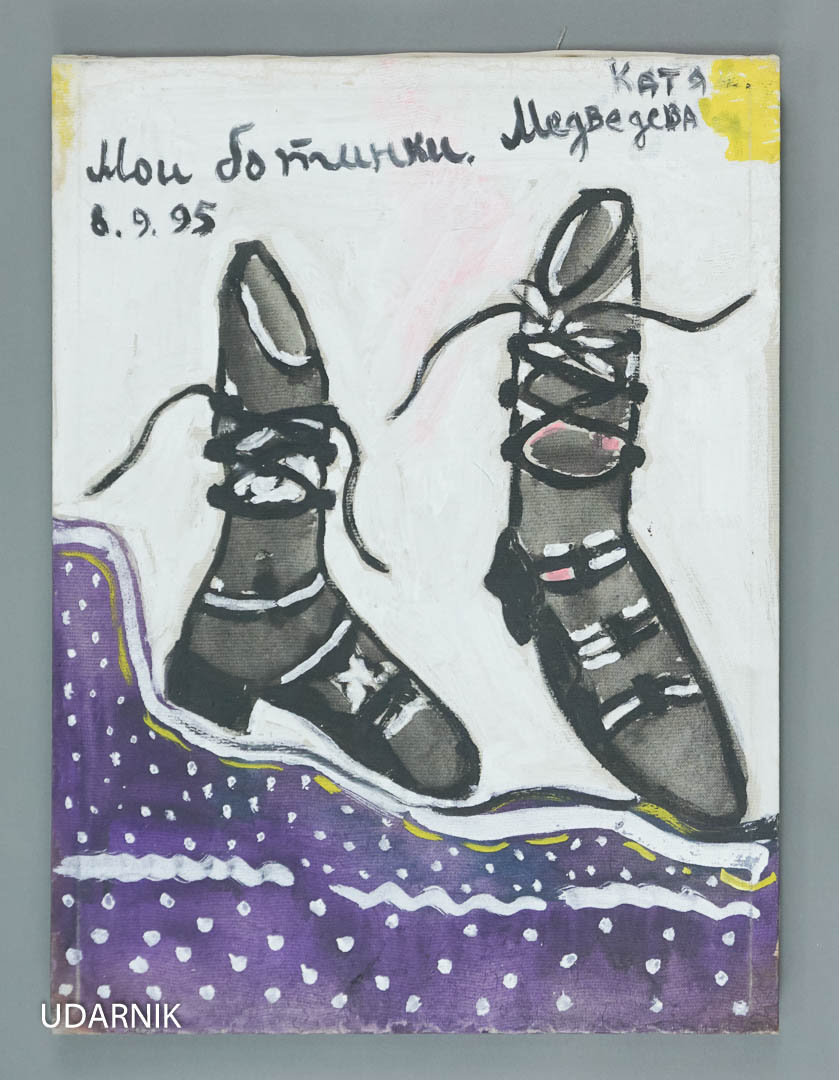 Катя
Медведева
Мои ботинки.
8.9.95
UDARNIK